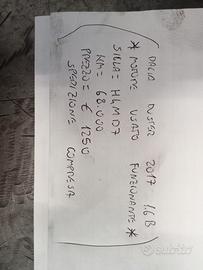 DACIA DUSTER 2017 1,6 B
* MOTORE USATO FUNZIONANTE *
SIGLA = H4MD7
KM = 68.000
PREZZO = € 1250
SPEDIZIONE COMPRESA
subito